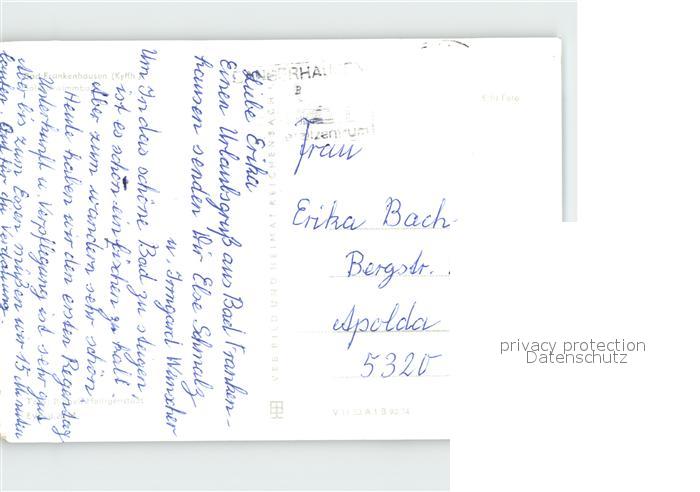 Bad Frankenhausen (Kyffh.)
Liebe Erika
Einen Urlaubsgruß aus Bad Franken-
hausen senden Dir Else Schmalz
u. Irmgard Wünscher
Um In das schöne Bad zu steigen,
ist es schon ein bischen zu kalt.
Aber zum wandern sehr schön
Heute haben wir den ersten Regentag
Unterkunft u. Verpflegung ist sehr gut
Aber bis zum Essen müßen wir 15 Minuten
laufen. Gut für die Verdauung.
Heiligenstadt
VEB BILD UND HEIMAT REICHENBACH
V 11 52 A 1 B
Foto
Frau
Erika Bach-
Bergstr.
Apolda
5320
privacy protection
Datenschutz